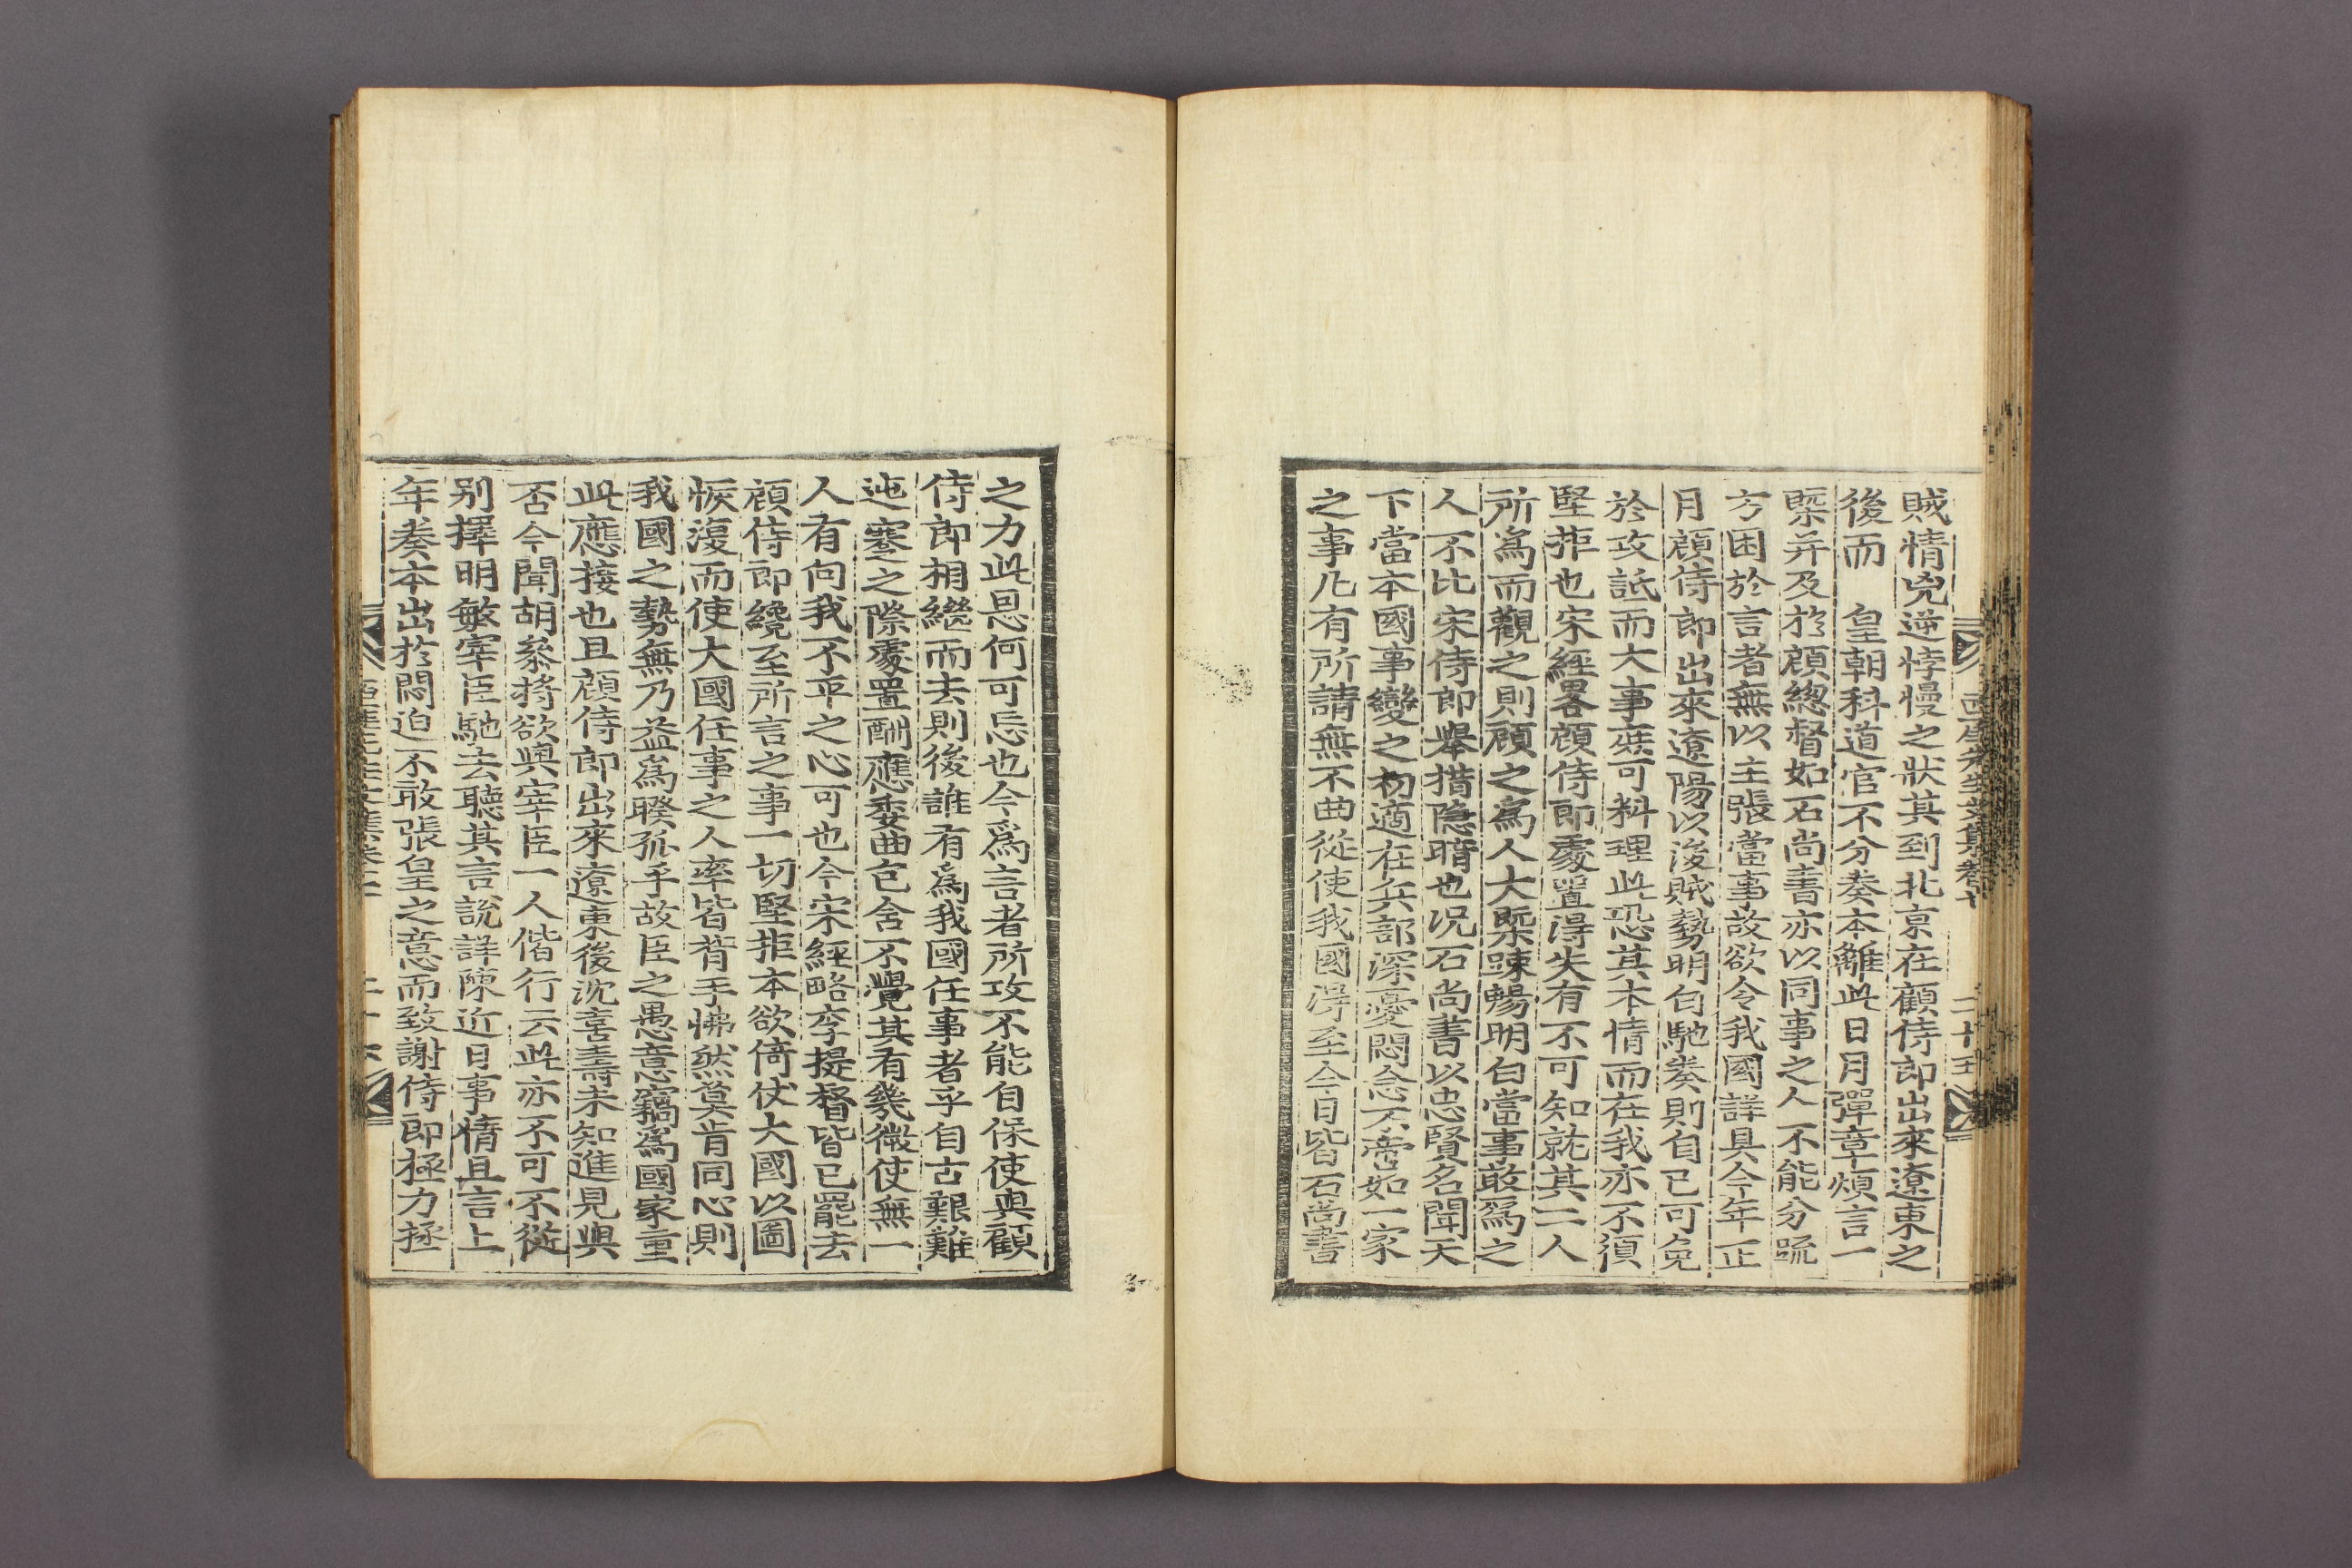 賊情兇逆悖慢之狀其到北京在顧侍郎出來遼東之
後而　皇朝科道官不分奏本離此日月彈章煩言一
槩幷及於顧緫督如石尚書亦以同事之人不能分䟽
方困於言者無以主張當事故欲令我國詳具今年正
月顧侍郎出來遼陽以後賊勢明白馳奏則自己可免
於攻詆而大事庶可料理此恐其本情而在我亦不須
堅拒也宋經畧顧侍郎處置得失有不可知就其二人
所爲而觀之則顧之爲人大槩踈暢明白當事敢爲之
人不比宋侍郎舉措隐暗也况石尚書以忠賢名聞天
下當本國事變之初適在兵部深憂悶念不啻如一家
之事凡有所請無不曲從使我國得至今日皆石尚書
西厓先生文集卷七　二十五
之力此恩何可忘也今爲言者所攻不能自保使與顧
侍郎相繼而去則後誰有爲我國任事者乎自古艱難
迍蹇之際處置酬應委曲包含不覺其有幾微使無一
人有向我不平之心可也今宋經略李提督皆已罷去
顧侍郎纔至所言之事一切堅拒本欲倚仗大國以圖
恢復而使大國任事之人率皆背手怫然莫肯同心則
我國之勢無乃益爲睽孤乎故臣之愚意竊爲國家重
此應接也且顧侍郎出來遼東後沈喜壽未知進見與
否今聞胡參將欲與宰臣一人偕行云此亦不可不從
別擇明敏宰臣馳去聽其言說詳陳近日事情且言上
年奏本出於悶迫不敢張皇之意而致謝侍郎極力拯